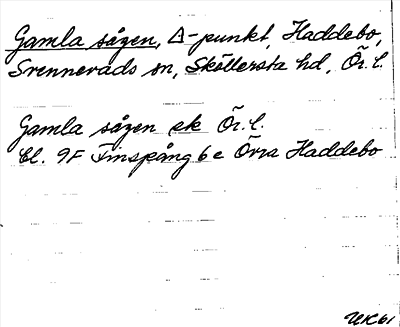 Gamla sågen, Δ-punkt, Haddebo,
Svennevads sn, Sköllersta hd, Ör. l.
Gamla sågen ek Ör. l.
bl. 9F Finspång 6e Övra Haddebo
UK61